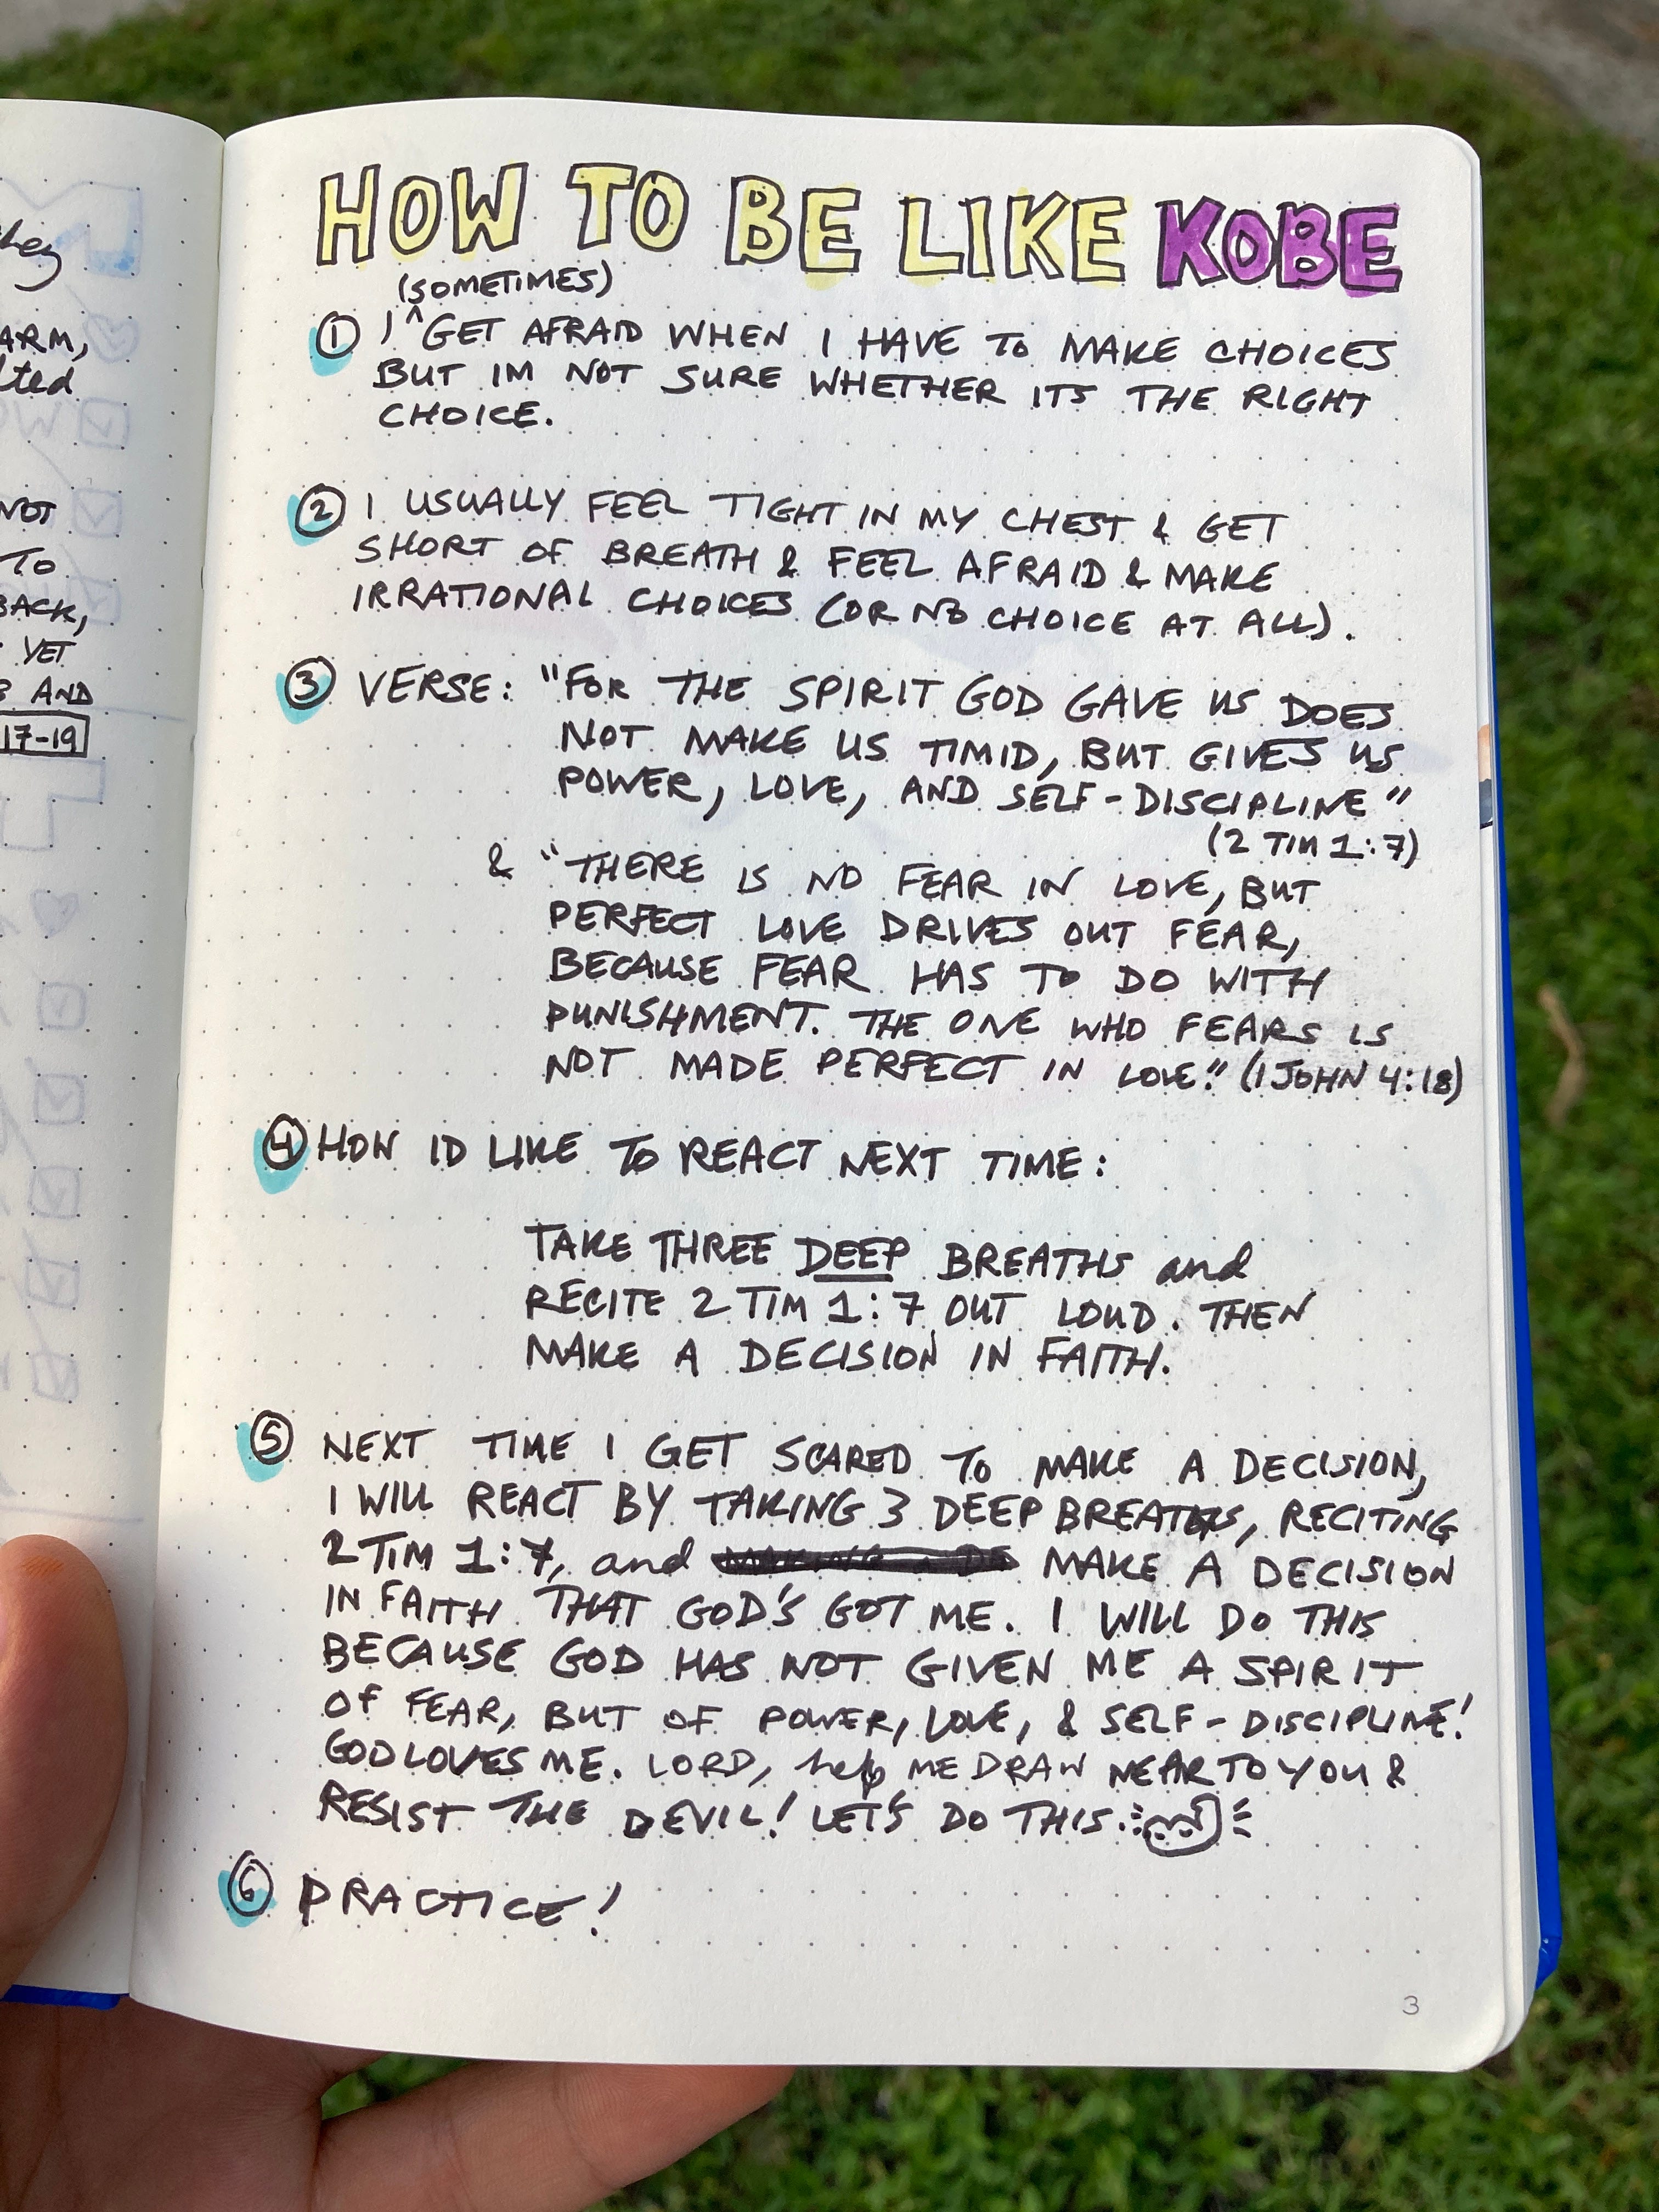 HOW TO BE LIKE KOBE
(SOMETIMES)
① I ^ GET AFRAID WHEN I HAVE TO MAKE CHOICES
BUT IM NOT SURE WHETHER ITS THE RIGHT
CHOICE.
② I USUALLY FEEL TIGHT IN MY CHEST & GET
SHORT OF BREATH & FEEL AFRAID & MAKE
IRRATIONAL CHOICES (OR NO CHOICE AT ALL).
③ VERSE: "FOR THE SPIRIT GOD GAVE US DOES
NOT MAKE US TIMID, BUT GIVES US
POWER, LOVE, AND SELF-DISCIPLINE"
(2 TIM 1:7)
& "THERE IS NO FEAR IN LOVE, BUT
PERFECT LOVE DRIVES OUT FEAR,
BECAUSE FEAR HAS TO DO WITH
PUNISHMENT. THE ONE WHO FEARS IS
NOT MADE PERFECT IN LOVE." (1 JOHN 4:18)
④ HOW ID LIKE TO REACT NEXT TIME:
TAKE THREE DEEP BREATHS and
RECITE 2 TIM 1:7 OUT LOUD. THEN
MAKE A DECISION IN FAITH.
⑤ NEXT TIME I GET SCARED TO MAKE A DECISION,
I WILL REACT BY TAKING 3 DEEP BREATHS, RECITING
2 TIM 1:7, and MAKE A DECISION
IN FAITH THAT GOD'S GOT ME. I WILL DO THIS
BECAUSE GOD HAS NOT GIVEN ME A SPIRIT
OF FEAR, BUT OF POWER, LOVE, & SELF-DISCIPLINE!
GOD LOVES ME. LORD, help ME DRAW NEAR TO YOU &
RESIST THE DEVIL! LET'S DO THIS.
⑥ PRACTICE!
3
ARM,
NOT
TO
BACK,
YET
AND
17-19